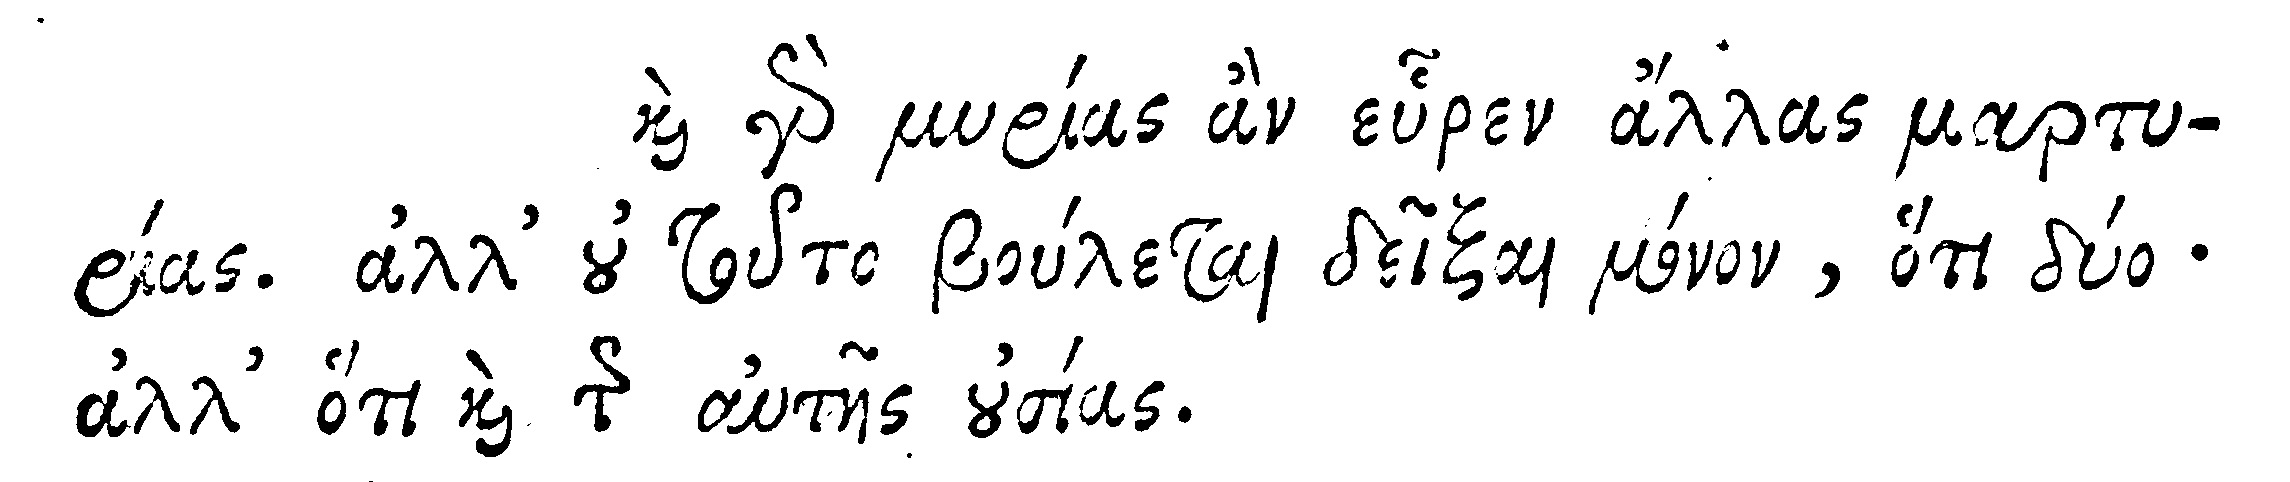 καὶ γὰρ μυρίας ἂν εὗρεν ἄλλας μαρτυ-
ρίας. ἀλλ’ οὐ τοῦτο βούλεται δεῖξαι μόνον, ὅτι δύο·
ἀλλ’ ὅτι καὶ τῆς αὐτῆς οὐσίας.